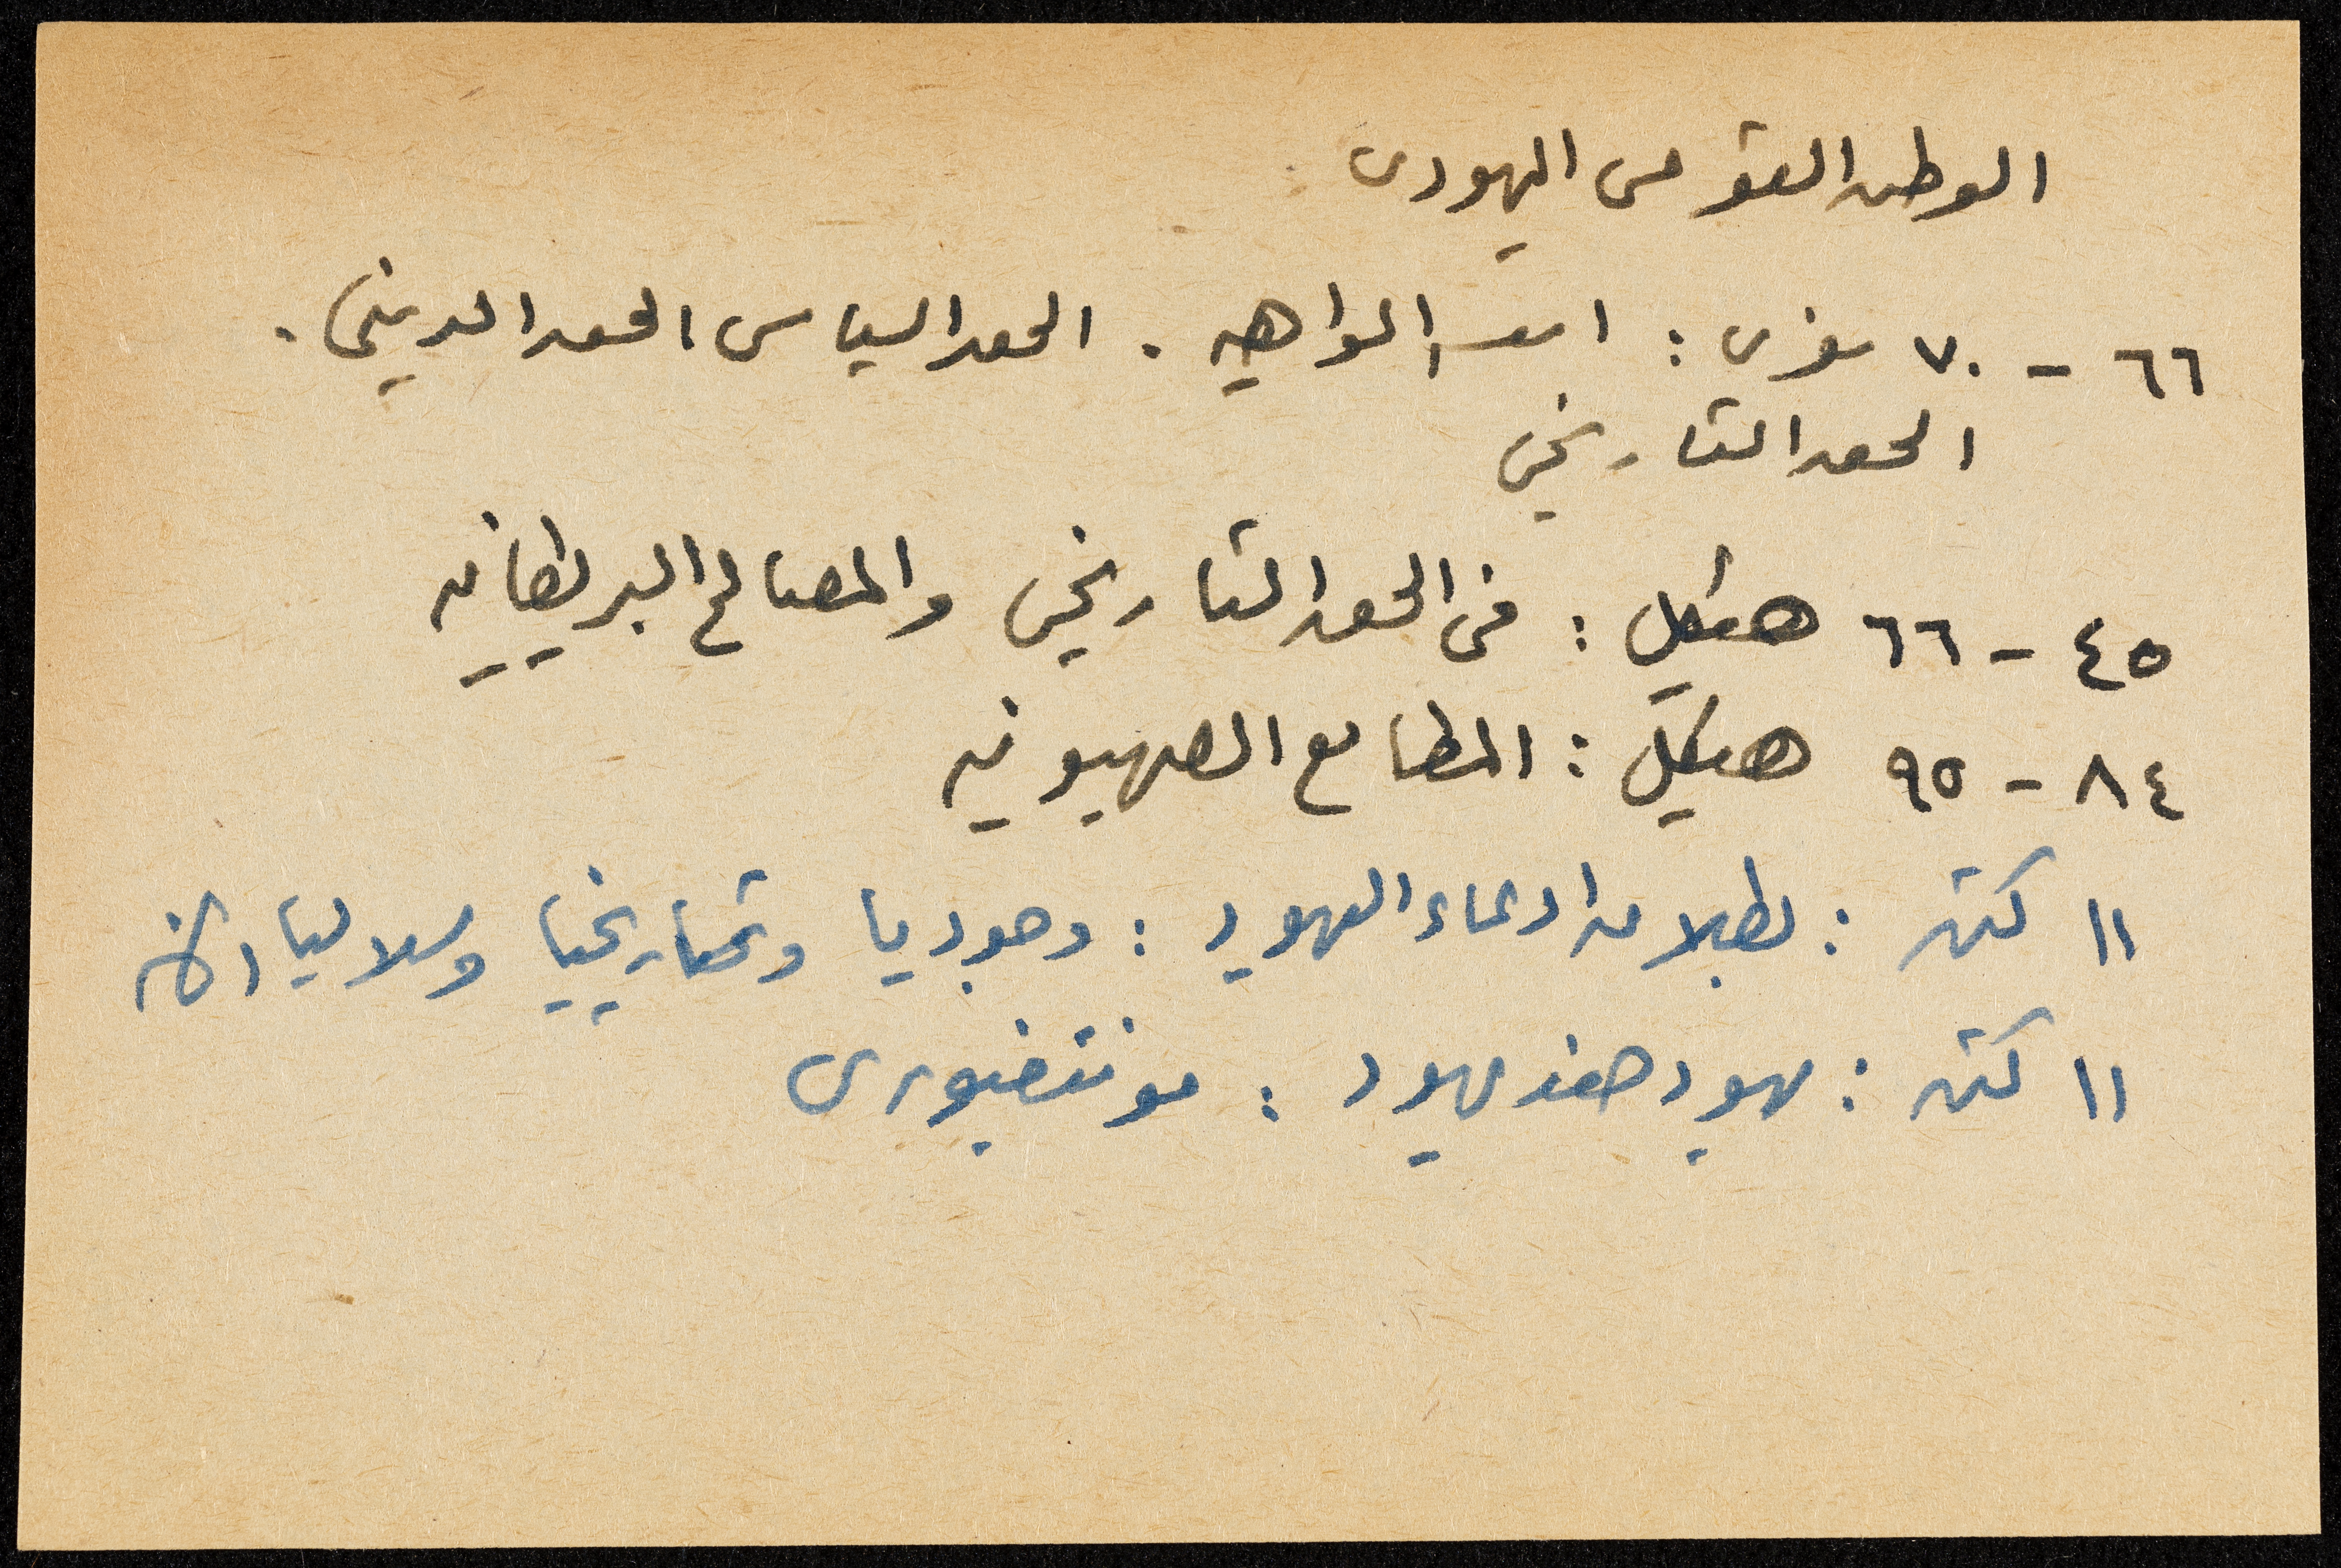 الوطن القومى اليهودى
٦٦ - ٧٠ مغزى : اسس الواهيه . الحق السياسى الحق الدينى .
الحق التاريخى
٤٥ - ٦٦ هيكل : فى الحق التاريخى والمصالح البريطانيه
٨٤ - ٩٥ هيكل : المطامع الصهيونيه
١١ كتن : بطلان ادعاء اليهود : وجوديا وتاريخيا وسلاليا
١١ كتن : يهود ضد يهود : مونتفيورى